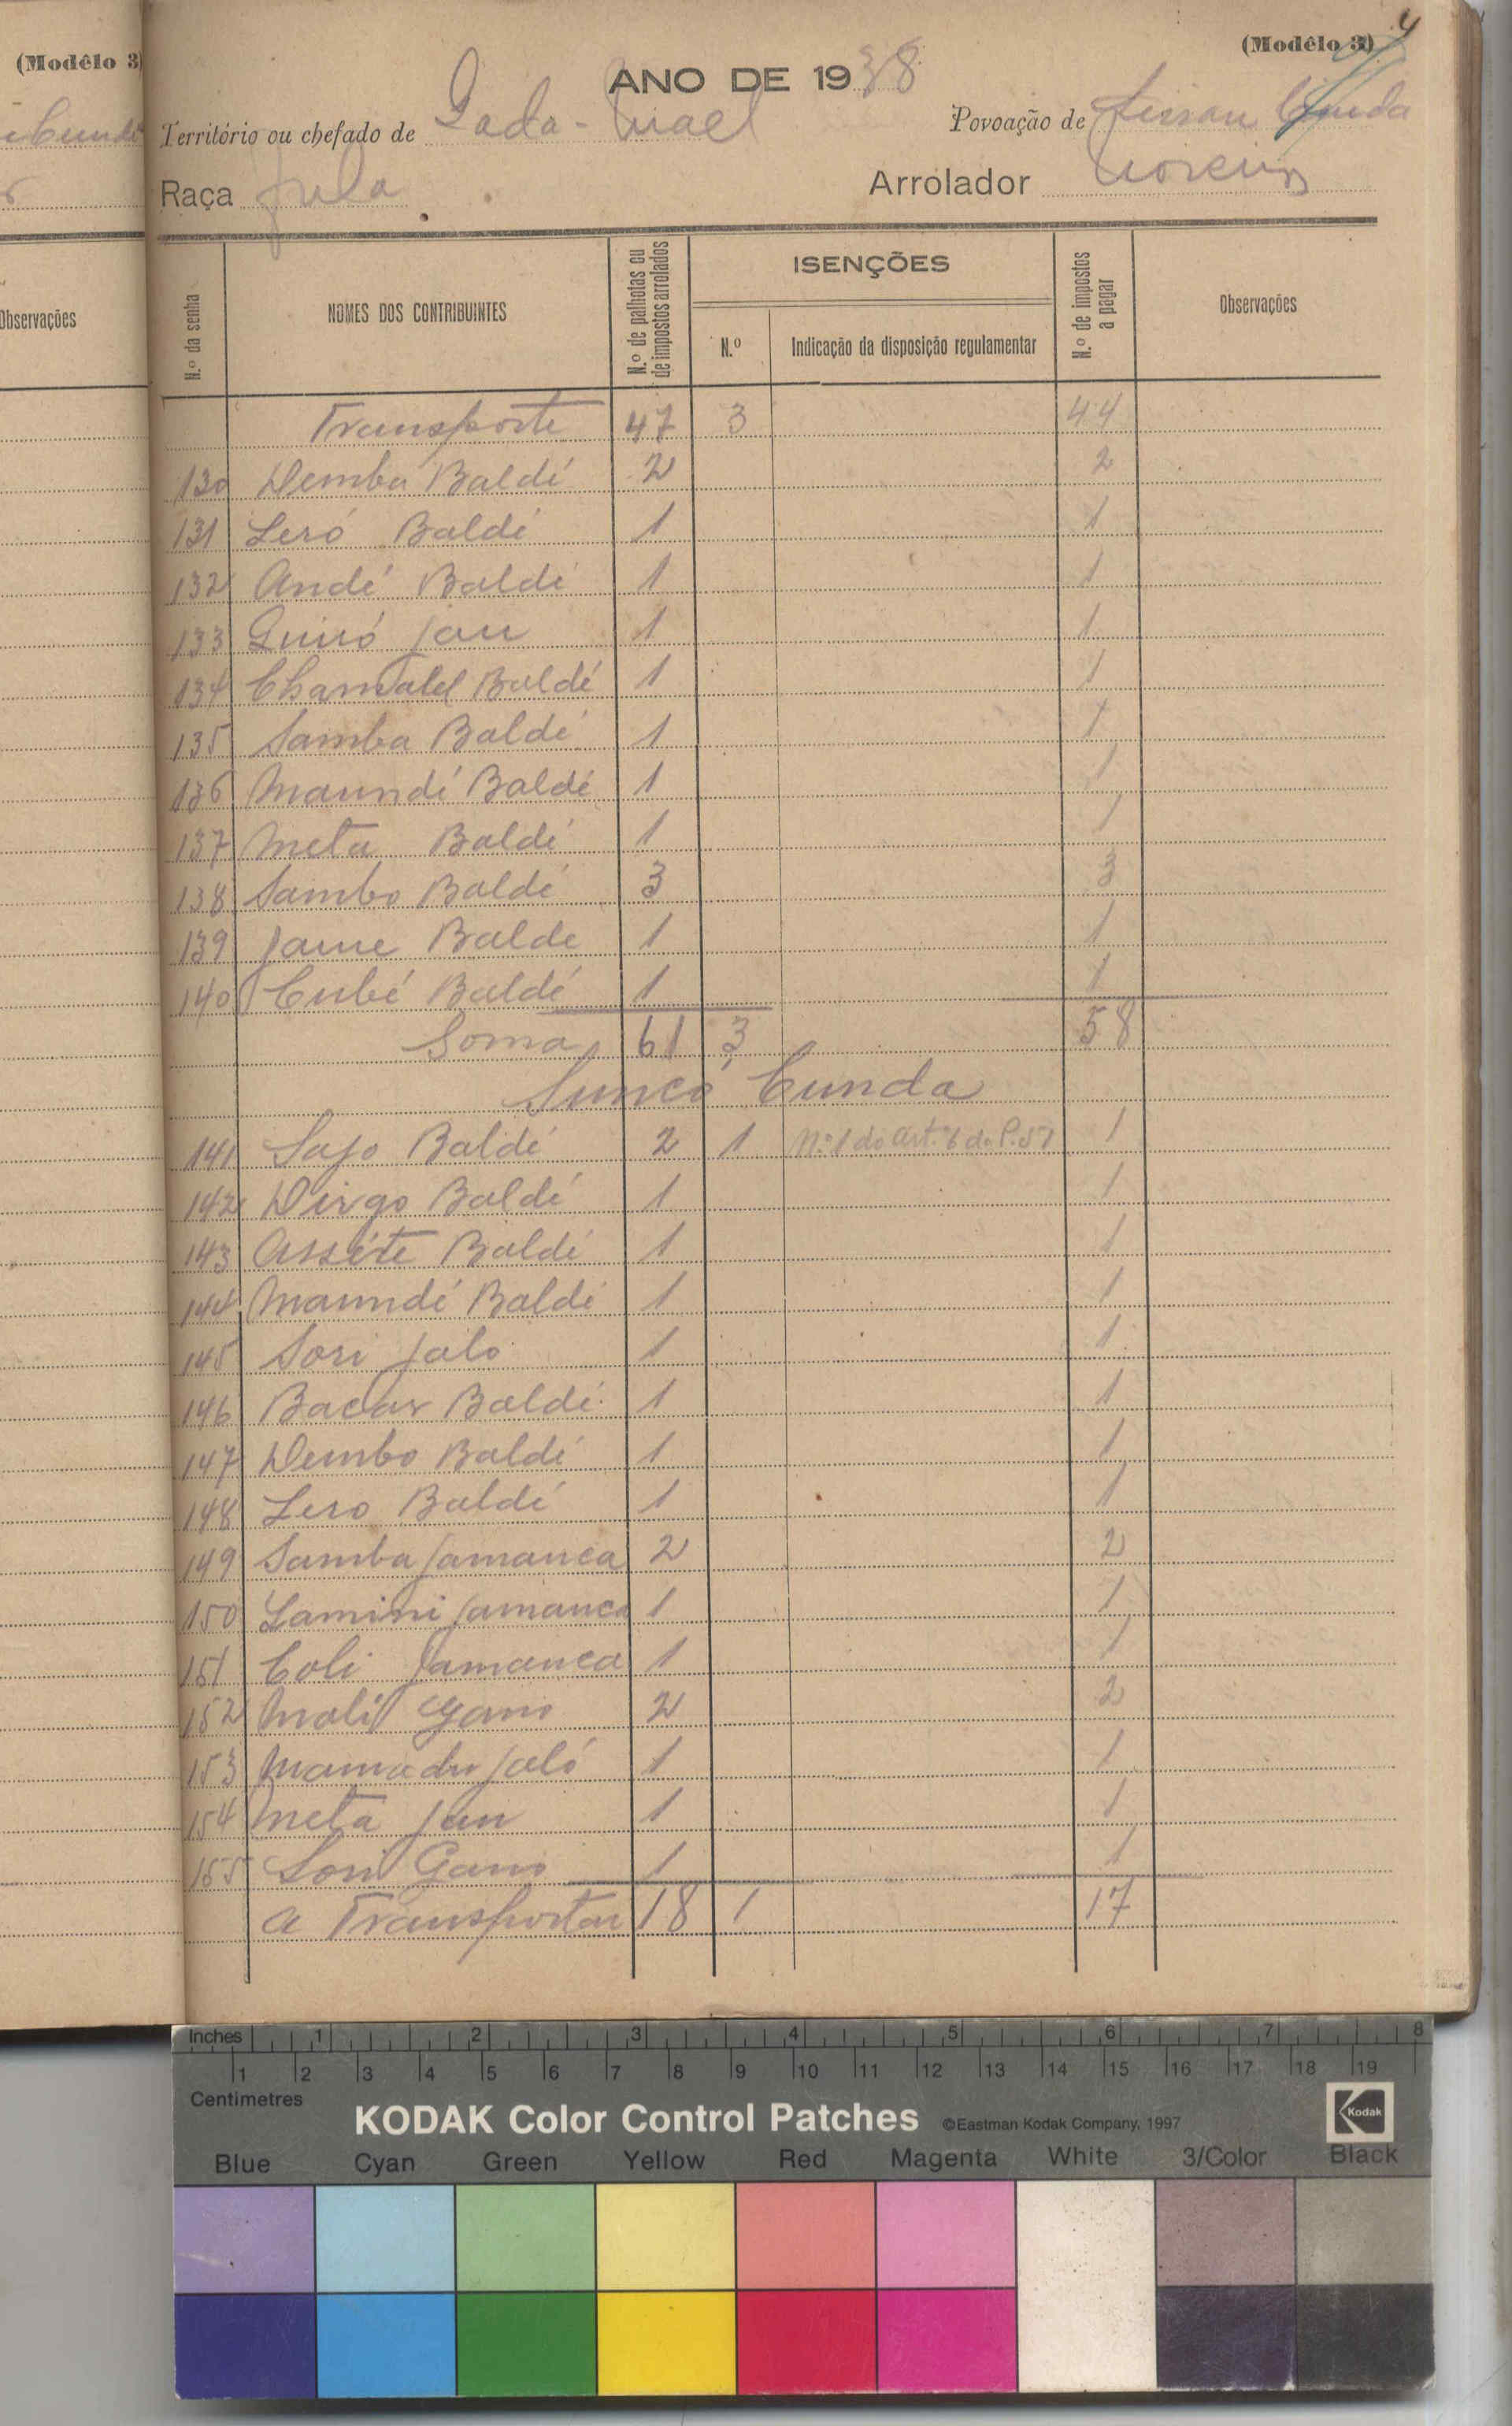 (Modêlo 3)
Observações
4
(Modêlo 3)
ANO DE 1938
Território ou chefado de Gada-Mael
Povoação de Cunda
Raça Fula
Arrolador Moreira
N.º da senha
NOMES DOS CONTRIBUINTES
N.º de palhotas ou de impostos arrolados
ISENÇÕES
N.º
Indicação da disposição regulamentar
N.º de impostos a pagar
Observações
Transporte 47 3 44
130 Demba Baldé 2 2
131 Leró Baldé 1 1
132 Andé Baldé 1 1
133 Guiró Jau 1 1
134 Baldé 1 1
135 Samba Baldé 1 1
136 Maundé Baldé 1 1
137 Meta Baldé 1 1
138 Sambo Baldé 3 3
139 Jame Balde 1 1
140 Cubé Baldé 1 1
Soma 61 3 58
Suncó Cunda
141 Sajo Baldé 2 1 N.º 1 do Art.º 6 do P. 57 1
142 Dirgo Baldé 1 1
143 Asséte Baldé 1 1
144 Maundé Baldé 1 1
145 Sori Jaló 1 1
146 Bacar Baldé 1 1
147 Dembo Baldé 1 1
148 Lero Baldé 1 1
149 Samba Jamanca 2 2
150 Lamini Jamanca 1 1
151 Coli Jamanca 1 1
152 Mali Gano 2 2
153 Mamadu Jaló 1 1
154 Meta Jau 1 1
155 Sori Gano 1 1
a Transportar 18 1 17
Inches 1 2 3 4 5 6 7 8
1 2 3 4 5 6 7 8 9 10 11 12 13 14 15 16 17 18 19
Centimetres
KODAK Color Control Patches ©Eastman Kodak Company, 1997 Kodak
Blue Cyan Green Yellow Red Magenta White 3/Color Black